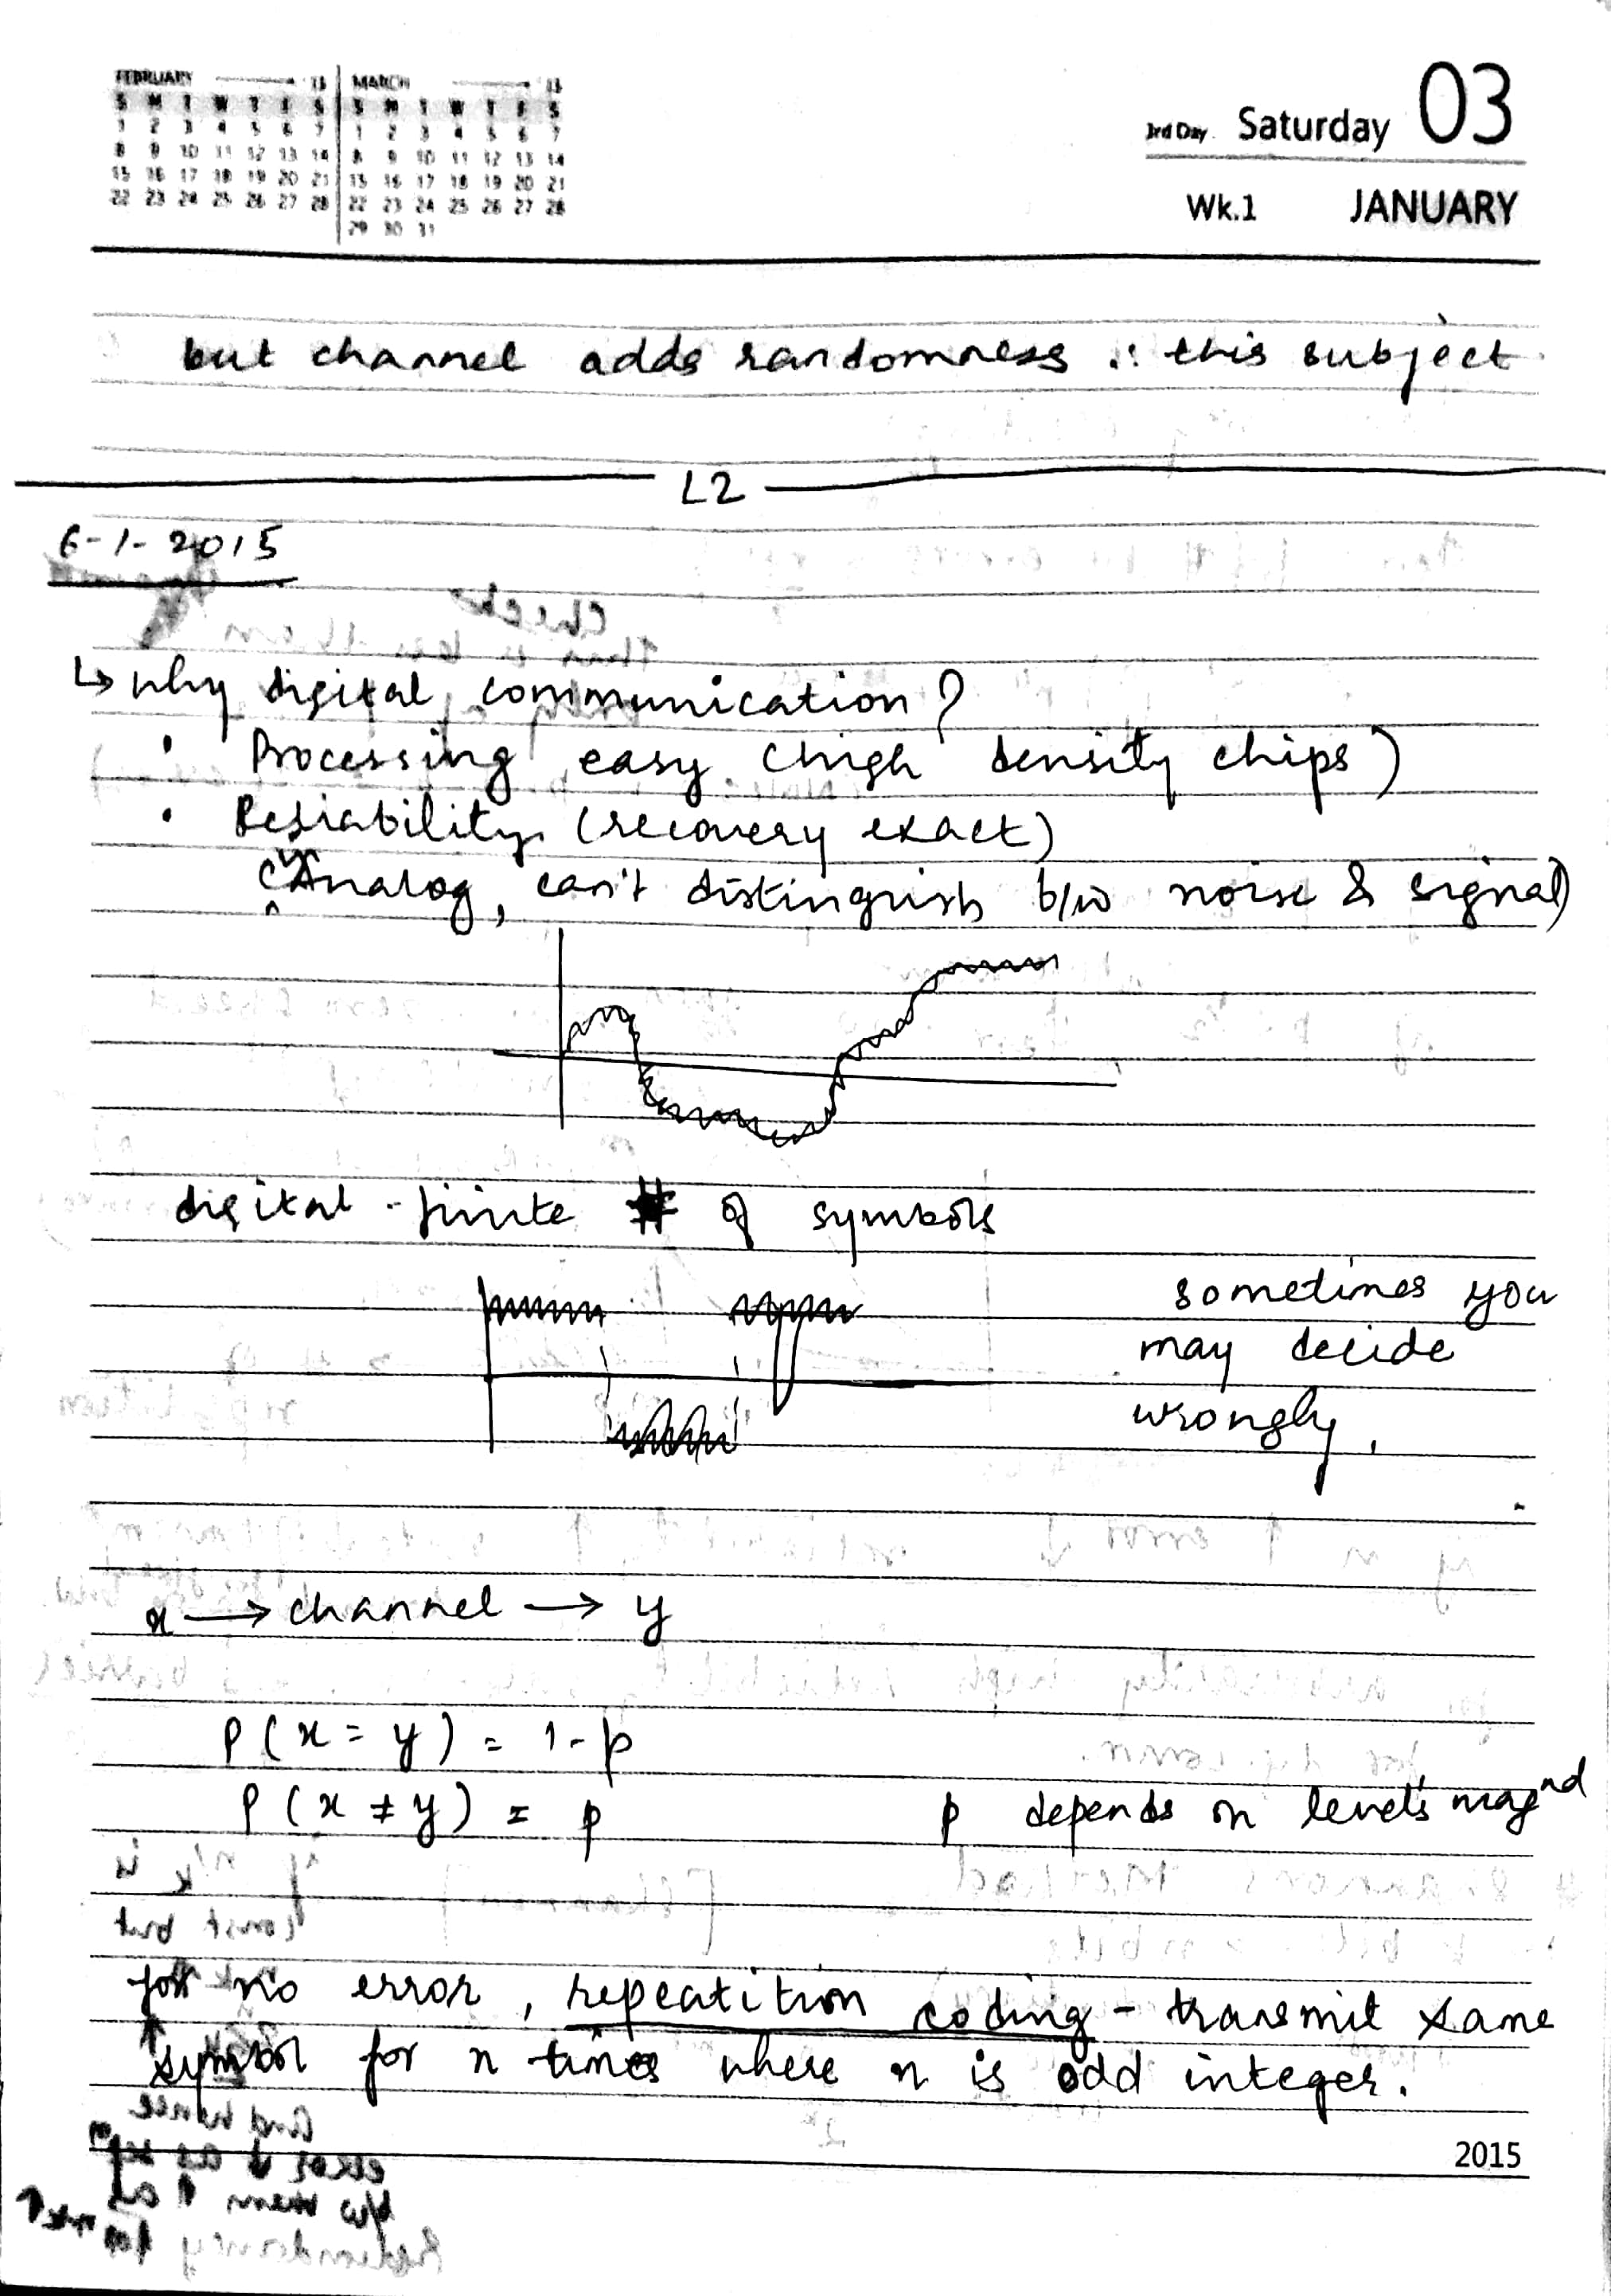 FEBRUARY 15 MARCH 15
S M T W T F S S M T W T F S
1 2 3 4 5 6 7 1 2 3 4 5 6 7
8 9 10 11 12 13 14 8 9 10 11 12 13 14
15 16 17 18 19 20 21 15 16 17 18 19 20 21
22 23 24 25 26 27 28 22 23 24 25 26 27 28
29 30 31
3rd Day Saturday 03
Wk.1 JANUARY
but channel adds randomness ∴ this subject
L2
6-1-2015
↳ why digital communication?
• Processing easy (high density chips)
• Reliability (recovery exact)
(Analog, can't distinguish b/w noise & signal)
digital - finite # of symbols
sometimes you
may decide
wrongly.
x → channel → y
P(x = y) = 1-p
P(x ≠ y) = p p depends on levels
for no error, repeatition coding - transmit same
symbol for n times where n is odd integer.
2015